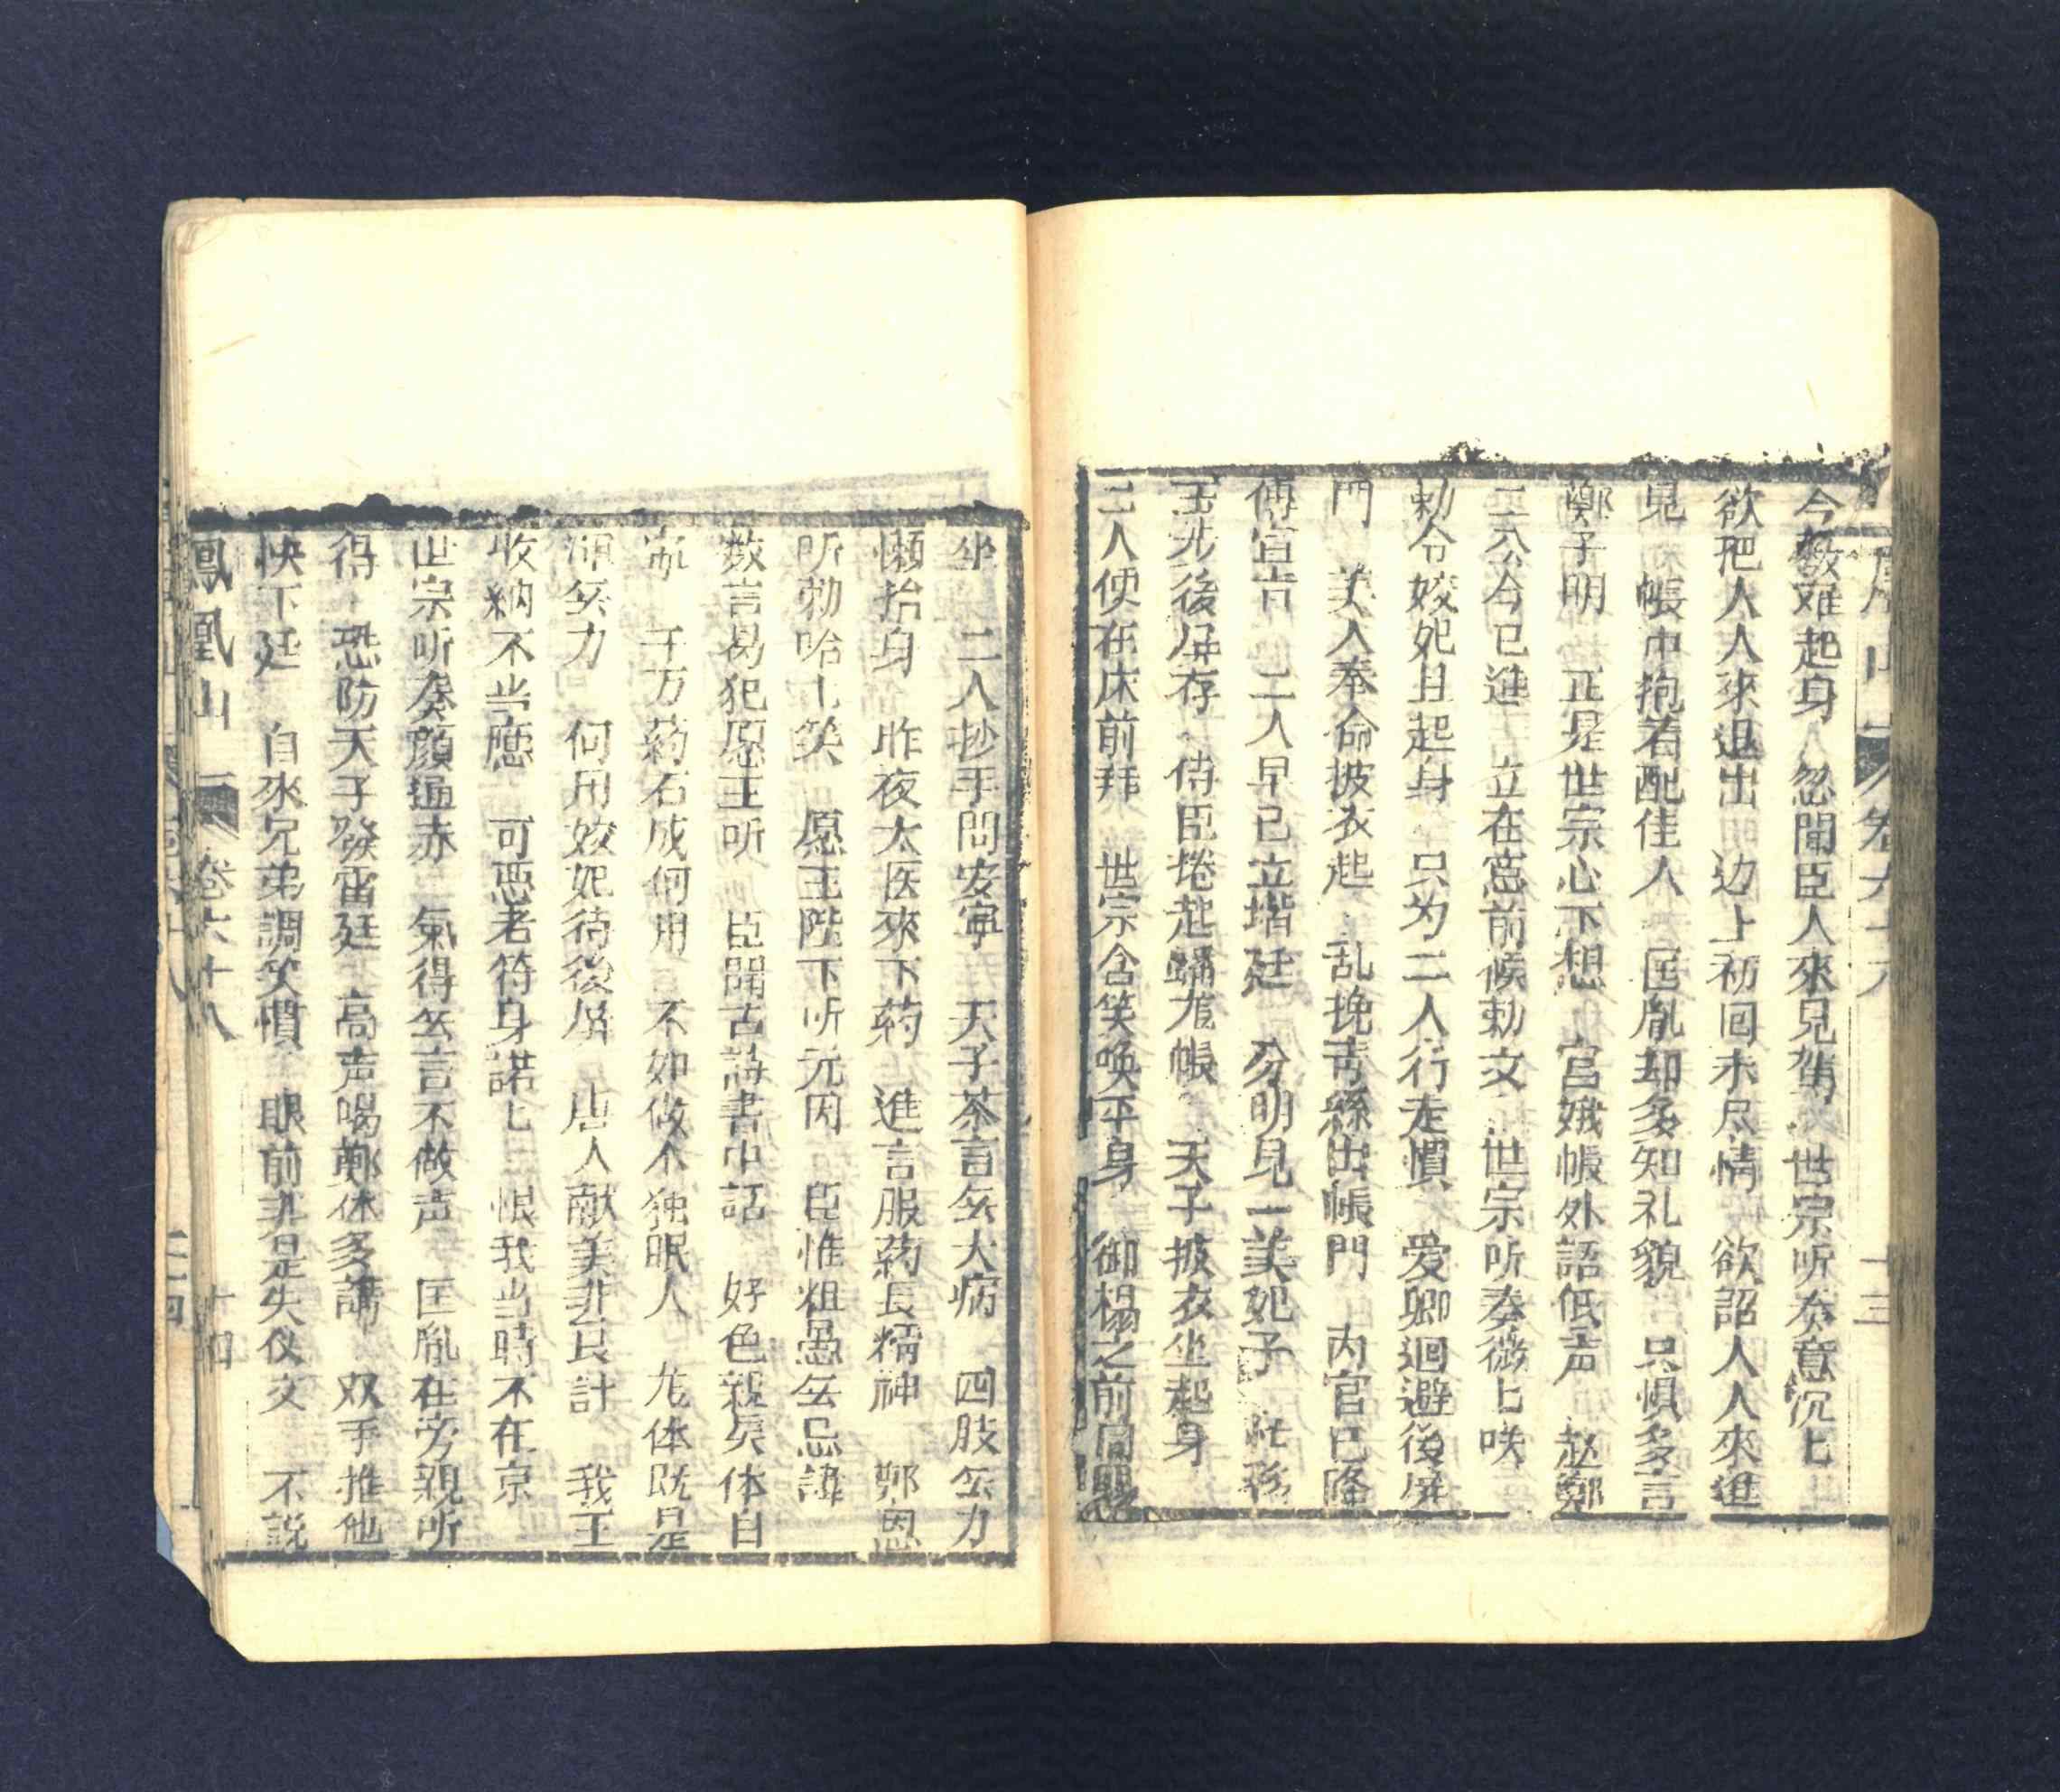 今教难起身 忽聞臣人來見駕 世宗听奏意沉匕
欲把人人來退出 边上初回未尽情 欲詔人人來進
見 帳中抱着配佳人 匡胤却多知礼貌 只惧多言
鄭子明 正是世宗心下想 宮娥帳外語低声 赵鄭
二公今已進 立在窓前候勅文 世宗听奏微匕咲
勅令姣妃且起身 只为二人行走慣 爱卿迴避後屏
門 美人奉命披衣起 乱挽青絲出帳門 内官已降
傳宣旨 二人早已立堦廷 分明見一美妃子 忙移
玉步後屏存 侍臣捲起蟠龙帳 天子披衣坐起身
二人便在床前拜 世宗含笑唤平身 御榻之前同賜
鳳凰山 卷六十八 十三
坐 二人抄手問安寧 天子荅言無大病 四肢無力
懶抬身 昨夜太医來下药 進言服药長精神 鄭恩
听勅哈匕笑 愿王陛下听元因 臣惟粗愚無忌諱
数言易犯愿王听 臣聞古蒔書中話 好色親矣体自
千万药石成何用 不如做个独眠人 龙体既是
無力 何用姣妃待後屏 唐人献美非良計 我王
收納不当應 可悪老符身諾匕 恨我当時不在京
世宗听奏顔通赤 氣得無言不做声 匡胤在旁親听
得 恐防天子發雷廷 高声喝鄭休多講 双手推他
快下廷 自來兄弟調笑慣 眼前非是失仪文 不説
鳳凰山 卷六十八 十四